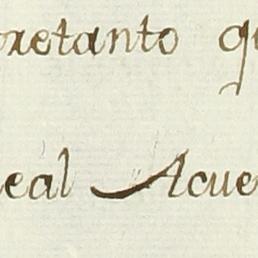 oretanto qu
eal Acue